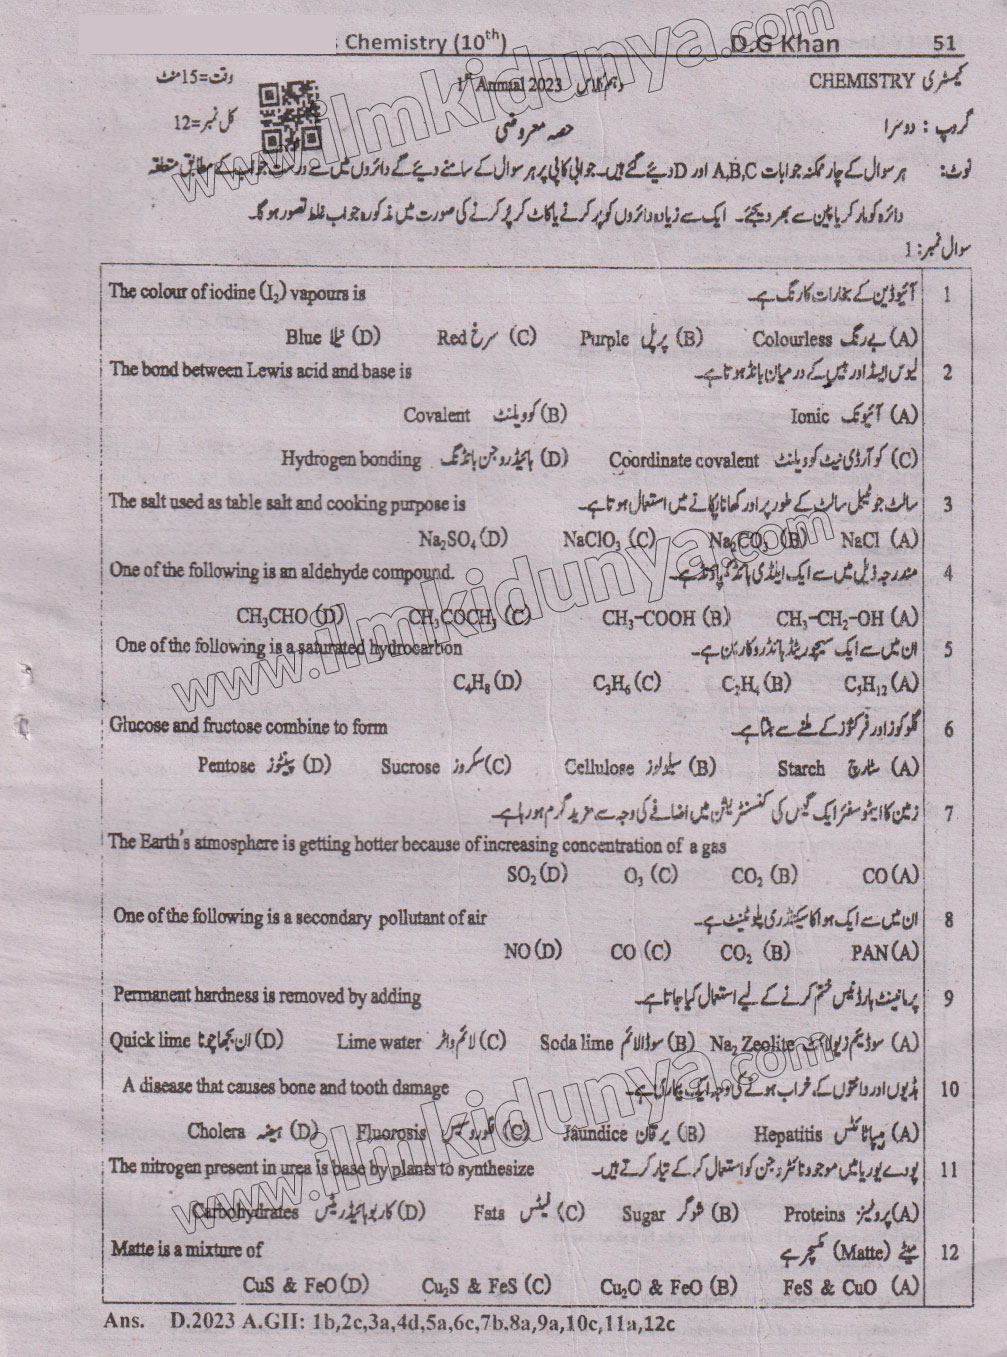 Chemistry (10th) D.G Khan 51
وقت=15منٹ 1st Annual 2023 دہم کلاس CHEMISTRY کیمسٹری
کل نمبر=12 حصہ معروضی گروپ : دوسرا
نوٹ: ہر سوال کے چار ممکنہ جوابات A,B,C اور D دیئے گئے ہیں۔ جوابی کاپی پر ہر سوال کے سامنے دیئے گئے دائروں میں سے درست جواب کے مطابق متعلقہ
دائرہ کو مارکر یا پین سے بھر دیجئے۔ ایک سے زیادہ دائروں کو پُر کرنے یا کاٹ کر پُر کرنے کی صورت میں مذکورہ جواب غلط تصور ہوگا۔
سوال نمبر: 1
The colour of iodine (I₂) vapours is آئیوڈین کے بخارات کا رنگ ہے۔ 1
Blue نیلا (D) Red سرخ (C) Purple پرپل (B) Colourless بے رنگ (A)
The bond between Lewis acid and base is لیوس ایسڈ اور بیس کے درمیان بانڈ ہوتا ہے۔ 2
Covalent کوویلنٹ (B) Ionic آئیونک (A)
Hydrogen bonding ہائیڈروجن بانڈنگ (D) Coordinate covalent کوآرڈی نیٹ کوویلنٹ (C)
The salt used as table salt and cooking purpose is سالٹ جو ٹیبل سالٹ کے طور پر اور کھانا پکانے میں استعمال ہوتا ہے۔ 3
Na₂SO₄ (D) NaClO₃ (C) Na₂CO₃ (B) NaCl (A)
One of the following is an aldehyde compound. مندرجہ ذیل میں سے ایک ایلڈی ہائڈ کمپاؤنڈ ہے۔ 4
CH₃CHO (D) CH₃COCH₃ (C) CH₃-COOH (B) CH₃-CH₂-OH (A)
One of the following is a saturated hydrocarbon ان میں سے ایک سیچوریٹڈ ہائڈروکاربن ہے۔ 5
C₄H₈ (D) C₃H₆ (C) C₂H₄ (B) C₅H₁₂ (A)
Glucose and fructose combine to form گلوکوز اور فرکٹوز کے ملنے سے بنتا ہے۔ 6
Pentose پینٹوز (D) Sucrose سکروز (C) Cellulose سیلولوز (B) Starch سٹارچ (A)
زمین کا ایٹموسفیئر ایک گیس کی کنسنٹریشن میں اضافے کی وجہ سے مزید گرم ہو رہا ہے۔ 7
The Earth's atmosphere is getting hotter because of increasing concentration of a gas
SO₂ (D) O₃ (C) CO₂ (B) CO (A)
One of the following is a secondary pollutant of air ان میں سے ایک ہوا کا سیکنڈری پلوٹینٹ ہے۔ 8
NO (D) CO (C) CO₂ (B) PAN (A)
Permanent hardness is removed by adding پرمانینٹ ہارڈنیس ختم کرنے کے لیے استعمال کیا جاتا ہے۔ 9
Quick lime ان بجھا چونا (D) Lime water لائم واٹر (C) Soda lime سوڈا لائم (B) Na₂ Zeolite سوڈیم زیولائیٹ (A)
A disease that causes bone and tooth damage ہڈیوں اور دانتوں کے خراب ہونے کی وجہ ایک بیماری ہے۔ 10
Cholera ہیضہ (D) Fluorosis فلوروسس (C) Jaundice یرقان (B) Hepatitis ہیپاٹائٹس (A)
The nitrogen present in urea is base by plants to synthesize پودے یوریا میں موجود نائٹروجن کو استعمال کر کے تیار کرتے ہیں۔ 11
Carbohydrates کاربوہائیڈریٹس (D) Fats فیٹس (C) Sugar شوگر (B) Proteins پروٹینز (A)
Matte is a mixture of میٹے (Matte) مکسچر ہے 12
CuS & FeO (D) Cu₂S & FeS (C) Cu₂O & FeO (B) FeS & CuO (A)
Ans. D.2023 A.GII: 1b,2c,3a,4d,5a,6c,7b.8a,9a,10c,11a,12c
www.ilmkidunya.com
www.ilmkidunya.com
www.ilmkidunya.com